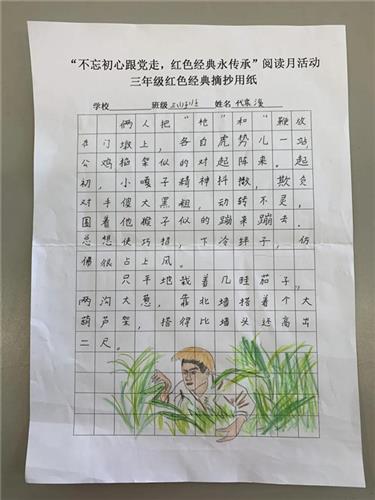 “不忘初心跟党走，红色经典永传承”阅读月活动
三年级红色经典摘抄用纸
学校 班级 姓名
俩人把“枪”和“鞭放
在门墩上，各自虎势儿一站，
公鸡掐架似的对起阵来。起
初，小嘎子精神抖擞，欺负
对手傻大黑粗，动转不灵，
围着他猴子似的蹦来蹦去.
总想使巧招，下冷绊子，仿
佛很占上风。
只平地栽着几畦茄子，
两沟大葱，靠北墙搭着个大
葫芦架，搭得比墙头还高出
二尺。